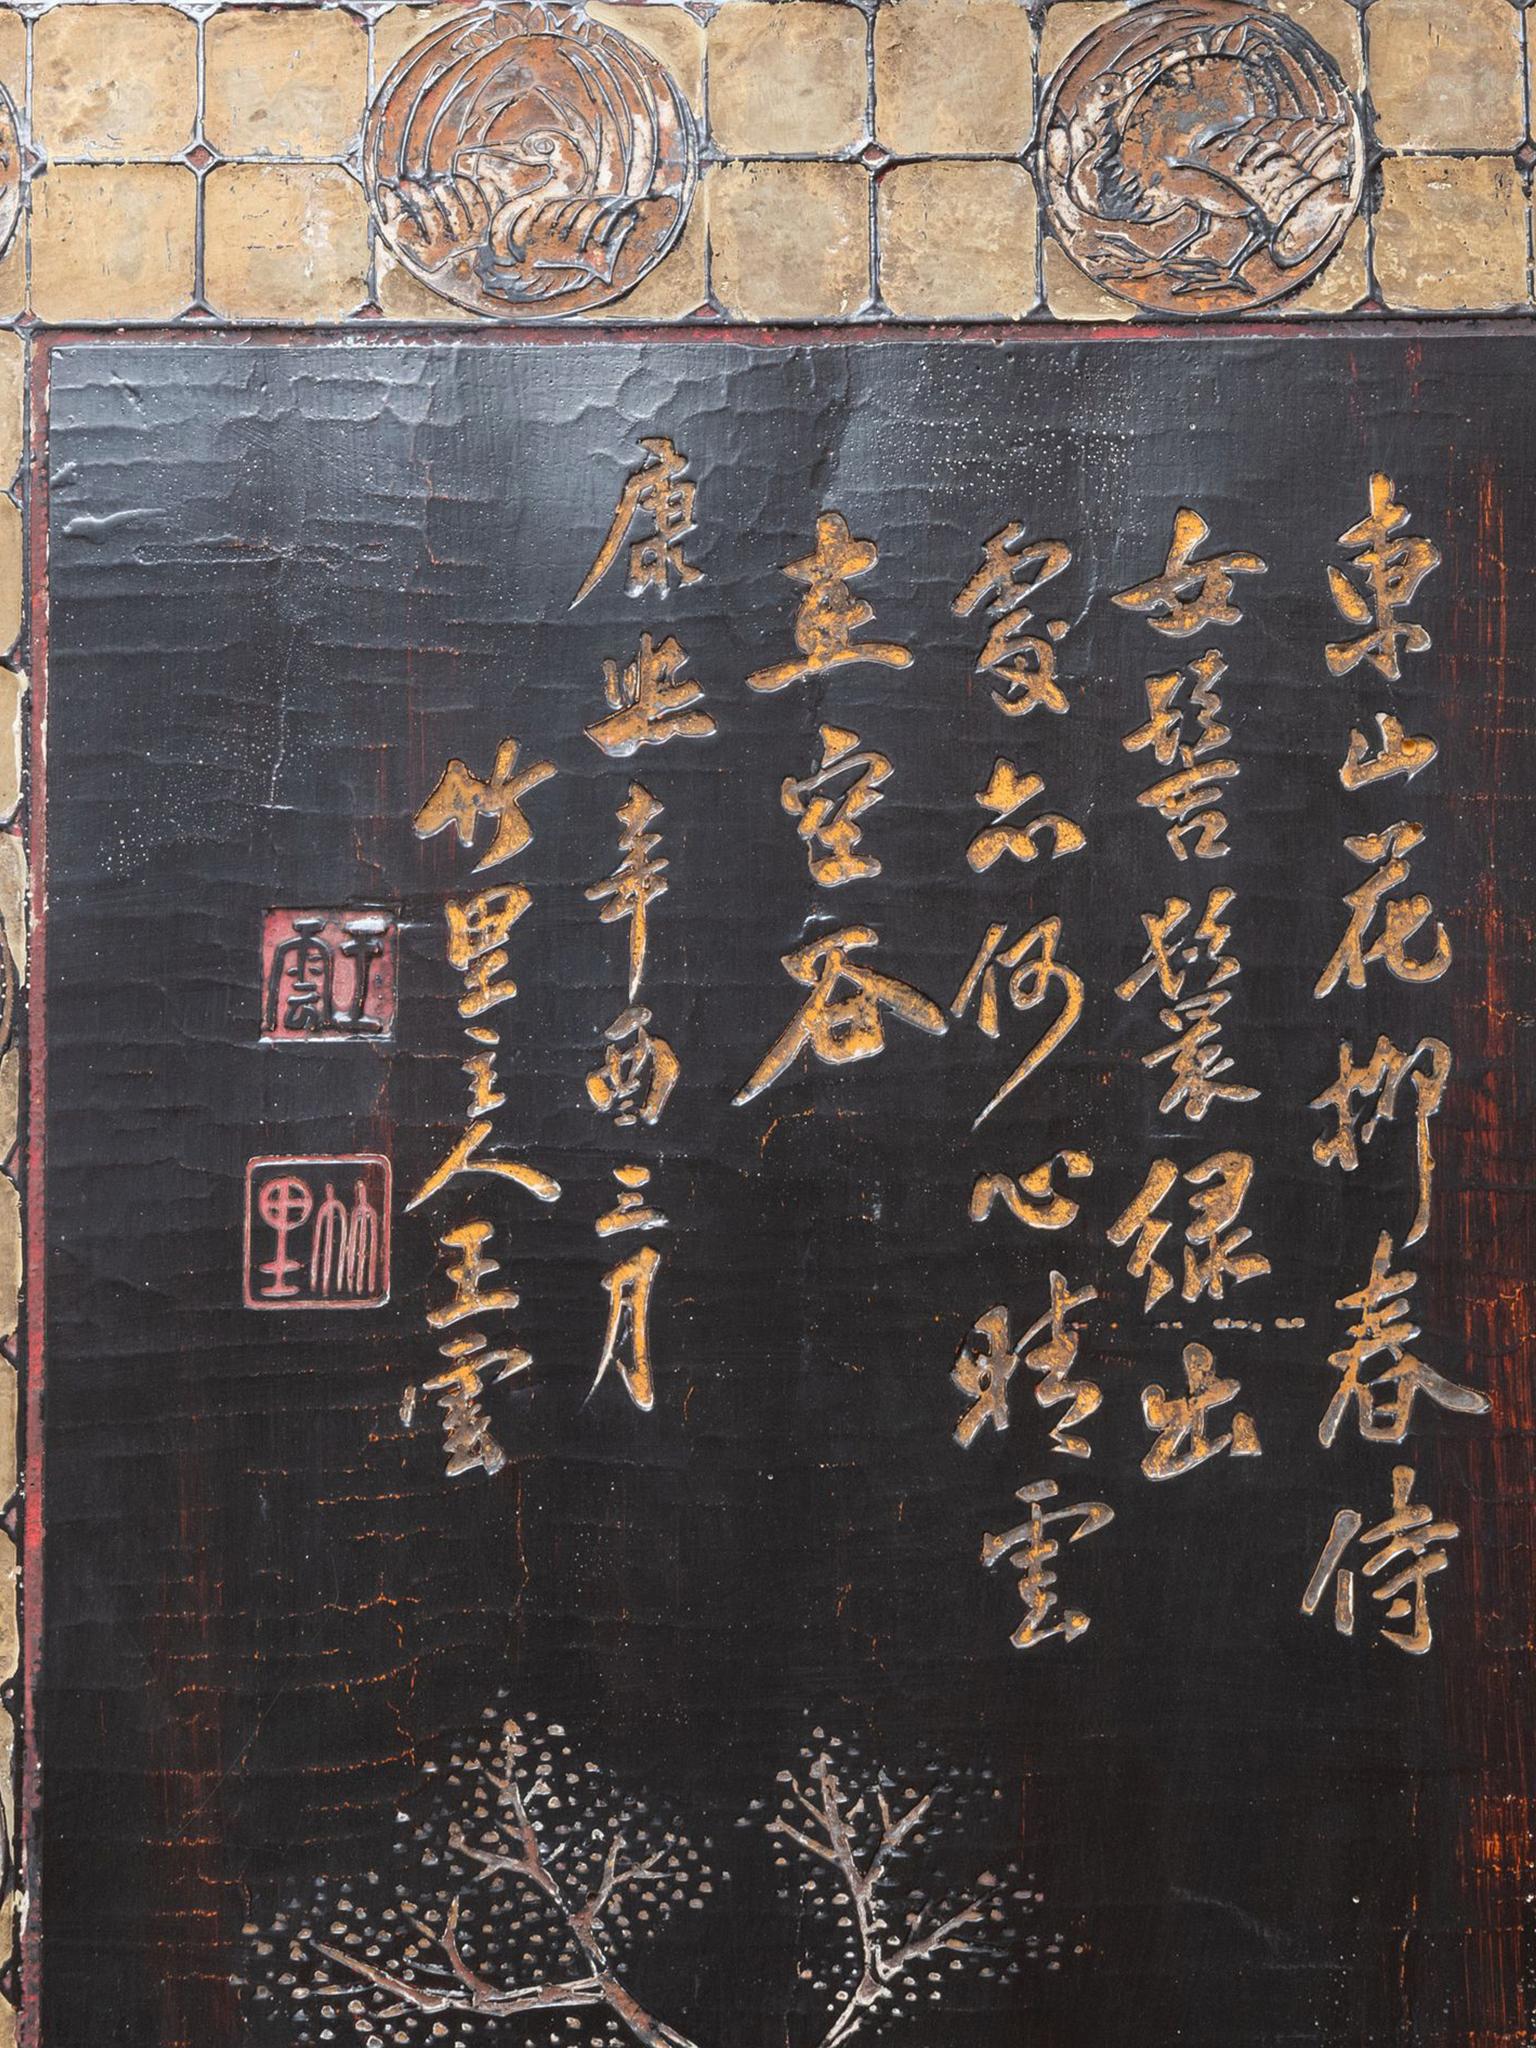 東山花柳春侍
女髻鬟綠出
處亦何心晴雲
在空谷
康熙辛酉三月
竹里主人王雲
王雲
竹里